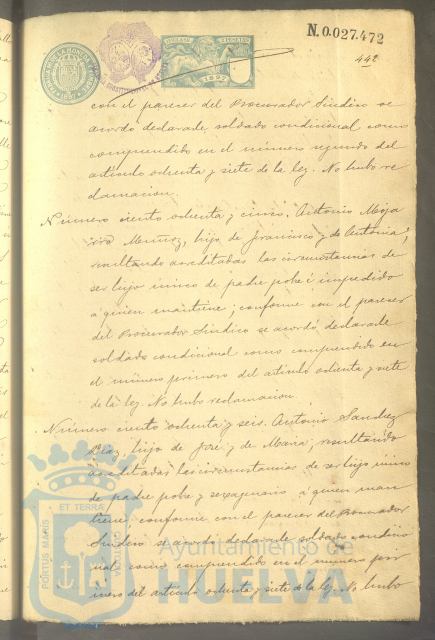 N.0.027.472
442
1897
con el parecer del Procurador Síndico se
acordó declararle soldado condicional como
comprendido en el número segundo del
artículo ochenta y siete de la ley. No hubo re
clamacion.
Número ciento ochenta y cinco. Antonio
Muñoz, hijo de Francisco y de Antonia,
resultando acreditadas las circunstancias de
ser hijo único de padre pobre é impedido
á quien mantiene; conforme con el parecer
del Procurador Síndico se acordó declararle
soldado condicional como comprendido en
el número primero del artículo ochenta y siete
de la ley. No hubo reclamacion.
Número ciento ochenta y seis. Antonio Sanchez
Diaz, hijo de José y de Maria, resultando
acreditadas las circunstancias de ser hijo único
de padre pobre y sexagenario á quien man
tiene; conforme con el parecer del Procurador
Síndico se acordó declararle soldado condicio
nal como comprendido en el número pri
mero del artículo ochenta y siete de la ley. No hubo
PORTUS MARIS ET TERRAE CUSTODIA
Ayuntamiento de
HUELVA